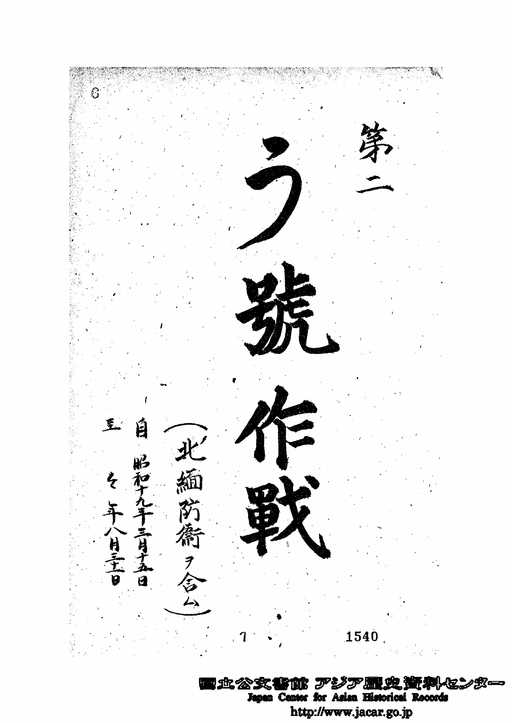 6
第二
う號作戰
(北緬防衞ヲ含ム)
自 昭和十九年三月十五日
至 〻 年八月三十一日
1540
國立公文書館 アジア歷史資料センター
Japan Center for Asian Historical Records
http://www.jacar.go.jp